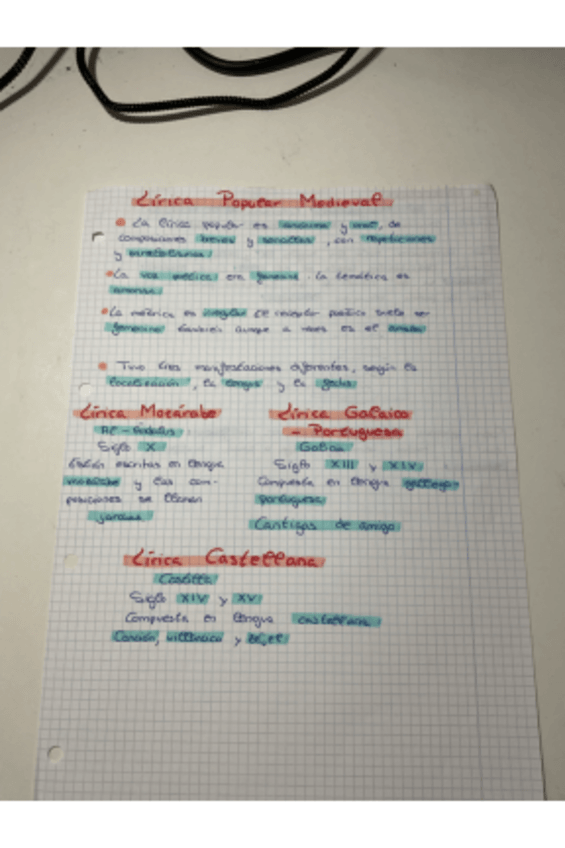 Lírica Popular Medieval
La lírica popular es anónima y oral, de
composiciones breves y sencillas, con repeticiones
y paralelismos
La voz poética era femenina. La temática es
amorosa
La métrica es irregular. El receptor poético suele ser
femenino también aunque a veces es el amado
Tuvo tres manifestaciones diferentes, según la
localización, la lengua y la fecha
Lírica Mozárabe
Al-Ándalus
Siglo X
Están escritas en lengua
mozárabe y las com-
posiciones se llaman
jarchas
Lírica Galaico
- Portuguesa
Galicia
Siglo XIII y XIV
Compuesta en lengua gallego-
portuguesa
Cantigas de amigo
Lírica Castellana
Castilla
Siglo XIV y XV
Compuesta en lengua castellana
Canción, villancico y